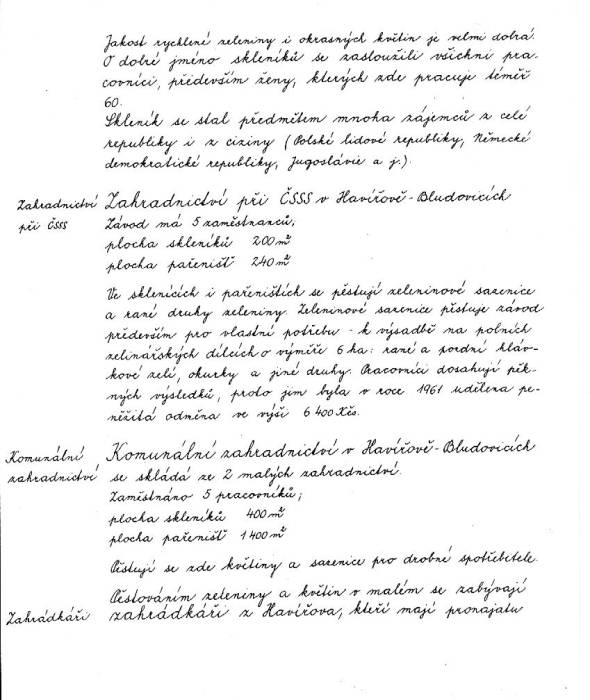 Jakost rychlené zeleniny i okrasných květin je velmi dobrá.
O dobré jméno skleníků se zasloužili všichni pra-
covníci, především ženy, kterých zde pracuje téměř
60.
Skleník se stal předmětem mnoha zájemců z celé
republiky i z ciziny (Polské lidové republiky, Německé
demokratické republiky, Jugoslávie a j.).
Zahradnictví při ČSSS
Zahradnictví při ČSSS v Havířově-Bludovicích
Závod má 5 zaměstnanců,
plocha skleníků 200 m²
plocha pařenišť 240 m²
Ve sklenících i pařeništích se pěstují zeleninové sazenice
a rané druhy zeleniny. Zeleninové sazenice pěstuje závod
především pro vlastní potřebu - k výsadbě na polních
zelinářských dílcích o výměře 6 ha: rané a pozdní hláv-
kové zelí, okurky a jiné druhy. Pracovníci dosahují pěk-
ných výsledků, proto jim byla v roce 1961 udělena pe-
něžitá odměna ve výši 6 400 Kčs.
Komunální zahradnictví
Komunální zahradnictví v Havířově-Bludovicích
se skládá ze 2 malých zahradnictví.
Zaměstnáno 5 pracovníků;
plocha skleníků 400 m²
plocha pařenišť 1 400 m²
Pěstují se zde květiny a sazenice pro drobné spotřebitele.
Pěstováním zeleniny a květin v malém se zabývají
Zahrádkáři
zahrádkáři z Havířova, kteří mají pronajatu